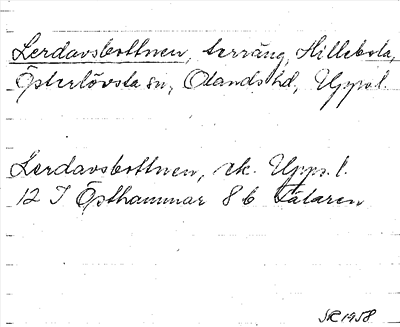 Lerdavsbottnen, terräng, Hillebola,
Österlövsta sn, Olands hd, Upps.l.
Lerdavsbottnen, ek. Upps. l.
12 I Östhammar 8 b
SR 1958